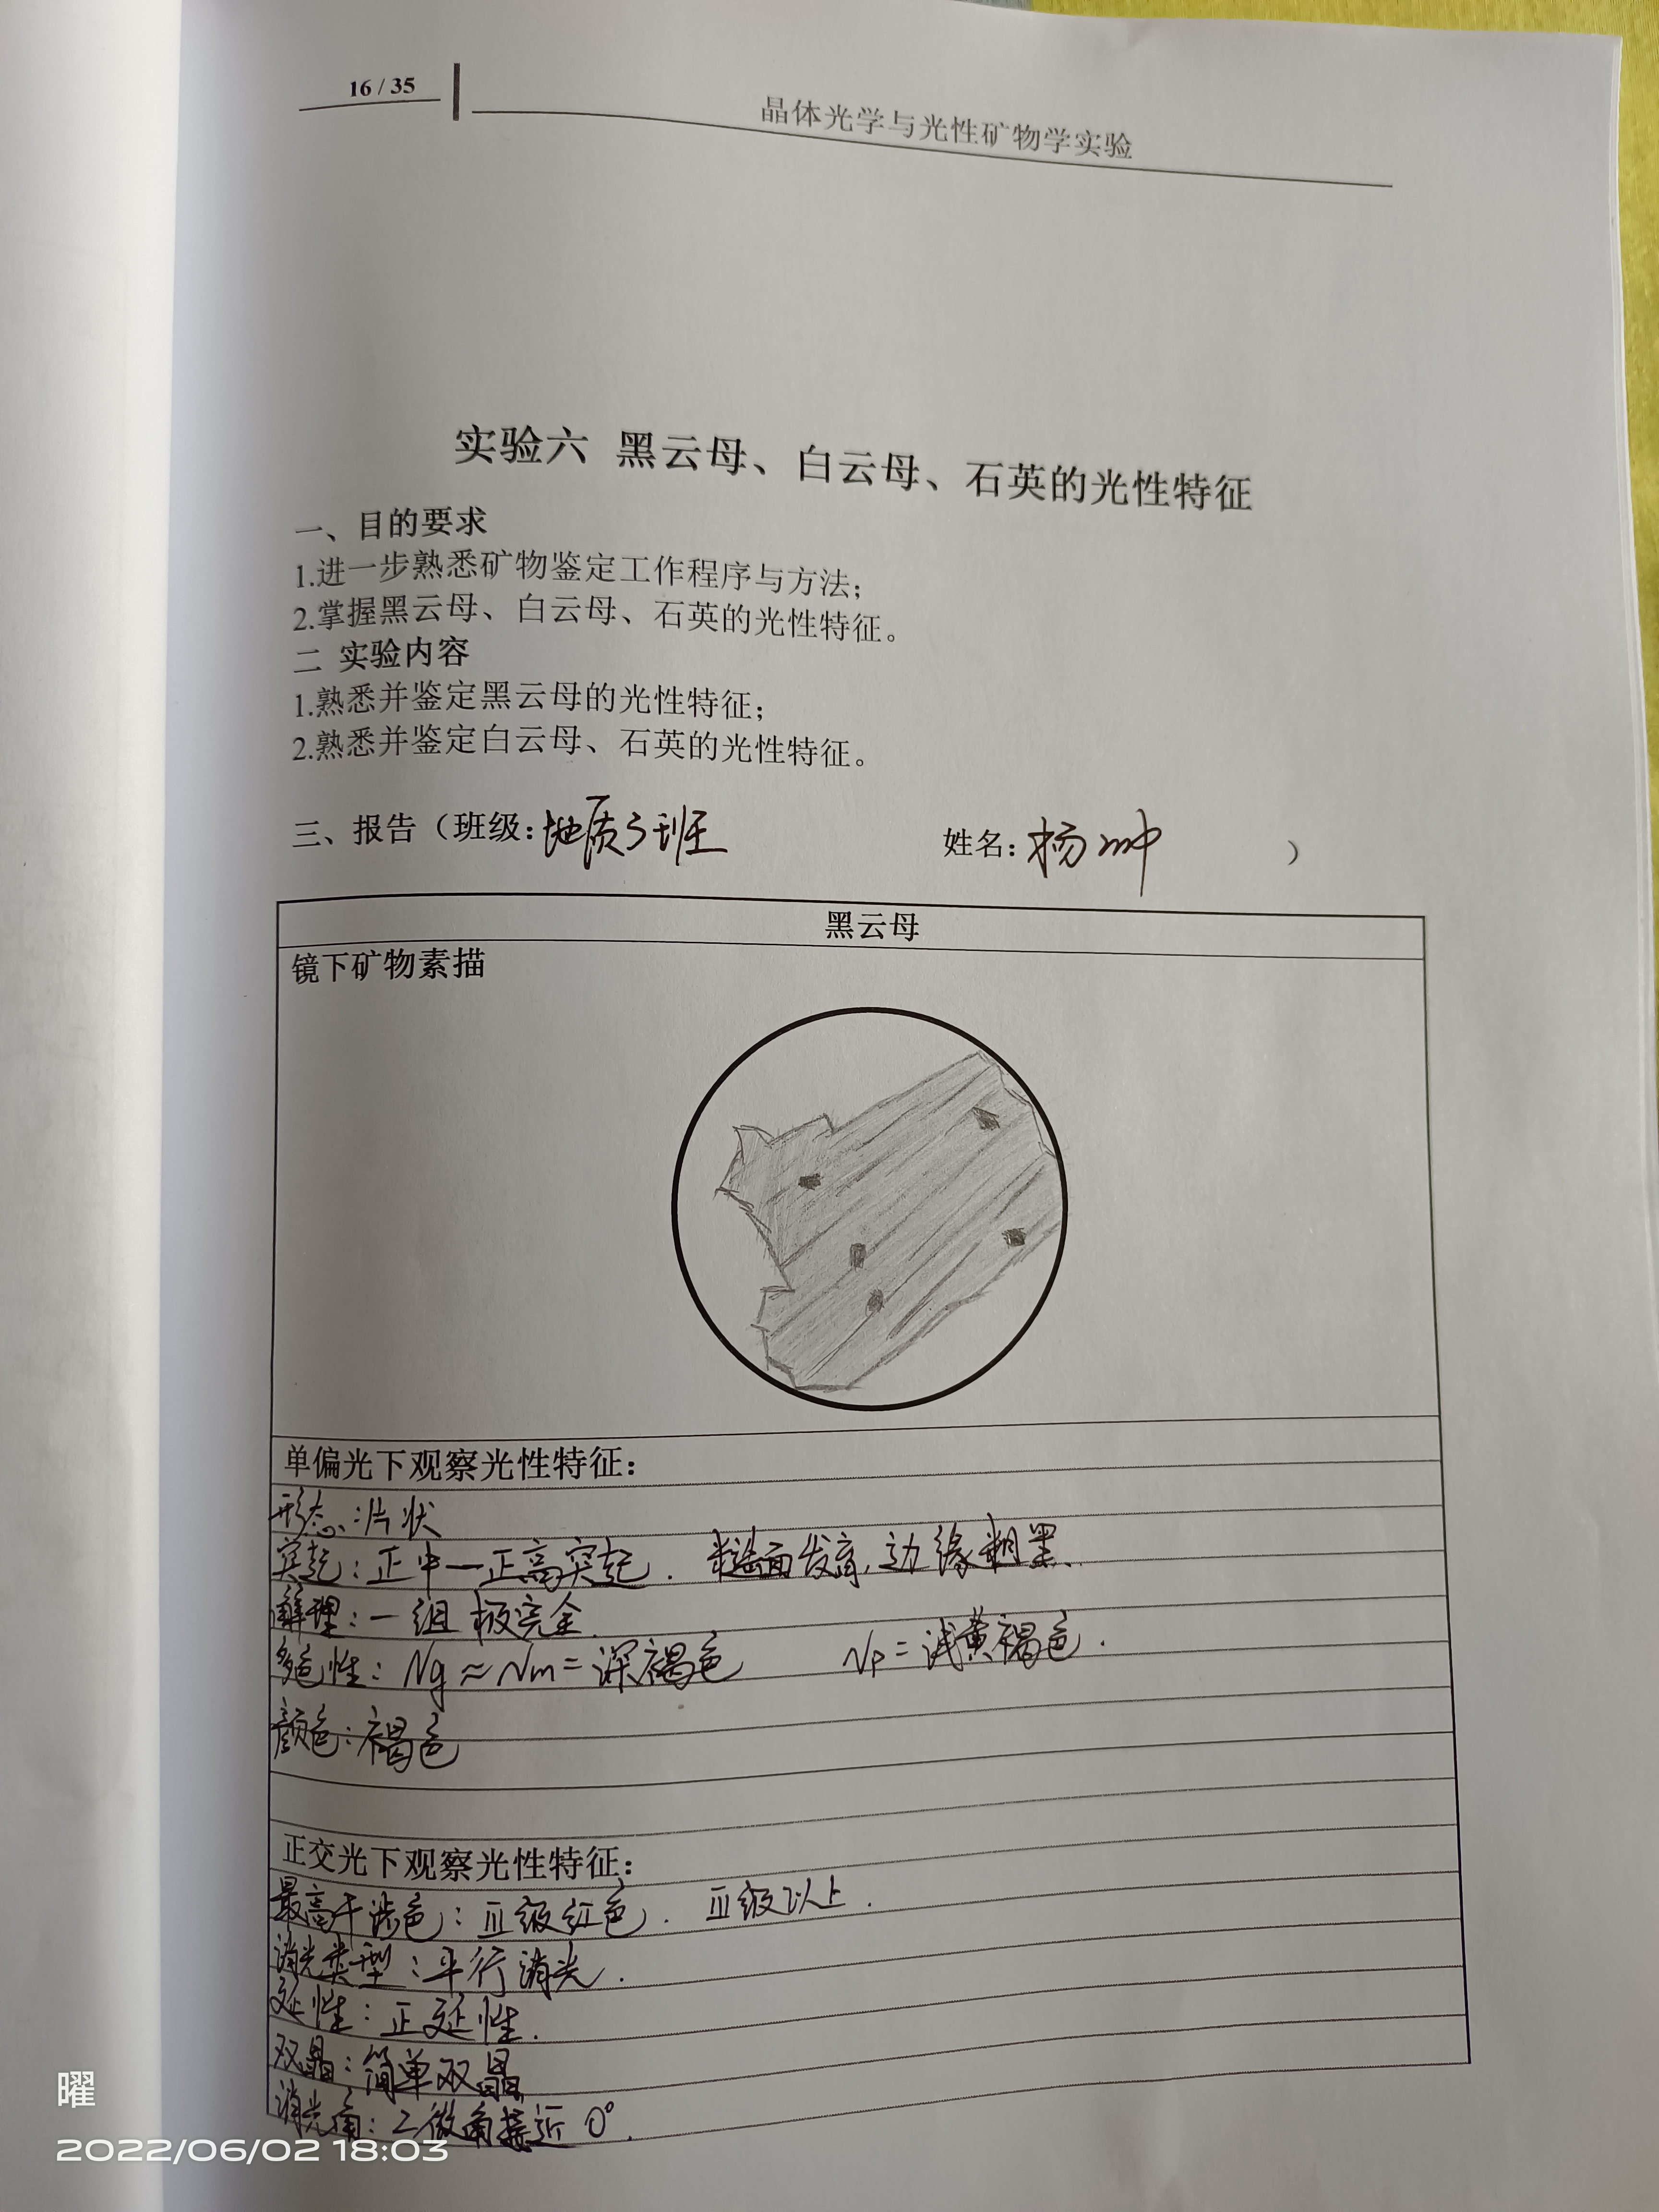 16 / 35
晶体光学与光性矿物学实验
实验六 黑云母、白云母、石英的光性特征
一、目的要求
1.进一步熟悉矿物鉴定工作程序与方法；
2.掌握黑云母、白云母、石英的光性特征。
二 实验内容
1.熟悉并鉴定黑云母的光性特征；
2.熟悉并鉴定白云母、石英的光性特征。
三、报告（班级：地质3班 姓名：杨 ）
黑云母
镜下矿物素描
单偏光下观察光性特征：
形态：片状
突起：正中—正高突起. 糙面发育，边缘粗黑、
解理：一组极完全.
多色性：Ng≈Nm=深褐色 Np=浅黄褐色.
颜色：褐色
正交光下观察光性特征：
最高干涉色：Ⅲ级红色. Ⅲ级以上.
消光类型：平行消光.
延性：正延性.
双晶：简单双晶
消光角：接近0°.
曜
2022/06/02 18:03